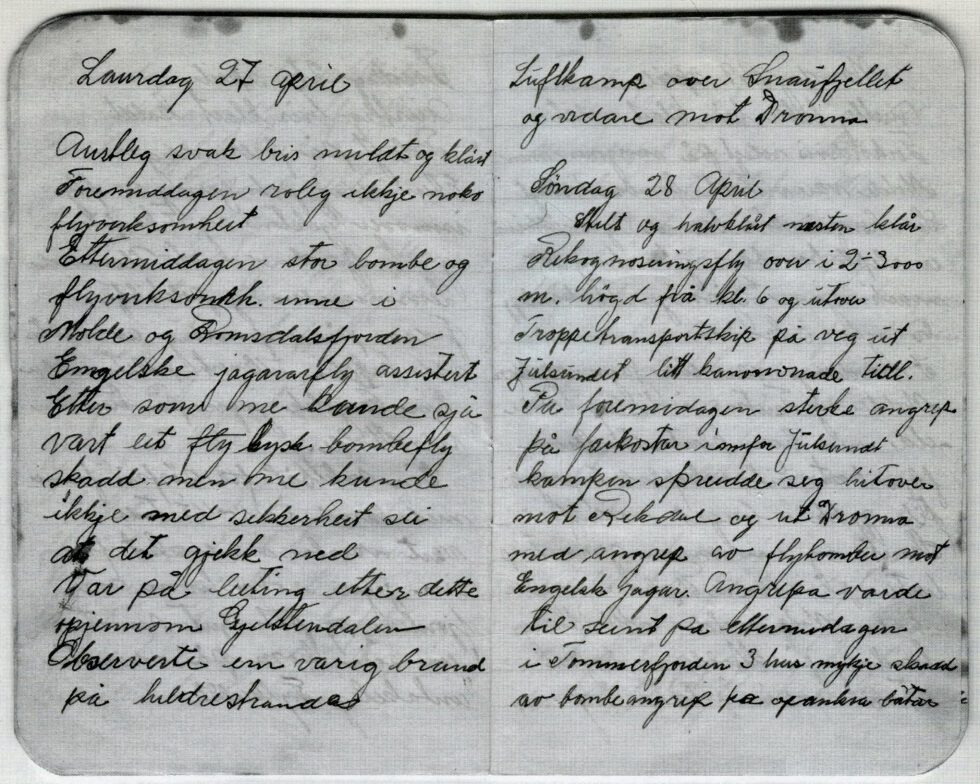 Laurdag 27 april
Austleg svak bris mildt og klårt
Foremiddagen roleg ikkje noko
flyverksomheit
Ettermiddagen stor bombe og
flyverksomh. inne i
Molde og Romsdalsfjorden
Engelske jagararfly assistert
Etter som me kunde sjå
vart eit fly tysk bombefly
skadd men me kunde
ikkje med sekkerheit sei
at det gjekk ned
Var på leiting etter dette
gjennom Gjelstendalen
Observerte ein varig brand
på hildrestranda
Luftkamp over Snaufjellet
og vidare mot Dronna
Søndag 28 April
Stilt og halvklårt næsten klår
Rekognoseringsfly over i 2-3000
m. högd frå kl. 6 og utover
Troppetransportskip på veg ut
Julsundet litt kanonnonade
På foremidagen sterke angrep
på farkostar Julsundt
kampen spreidde seg hitover
mot Rekdal og ut Dronna
med angrep av flybomber mot
Engelsk jagar. Angrepa varde
til seint på Ettermidagen
i Tommerfjorden 3 hus mykje skadd
av bombeangrep på opankra båtar